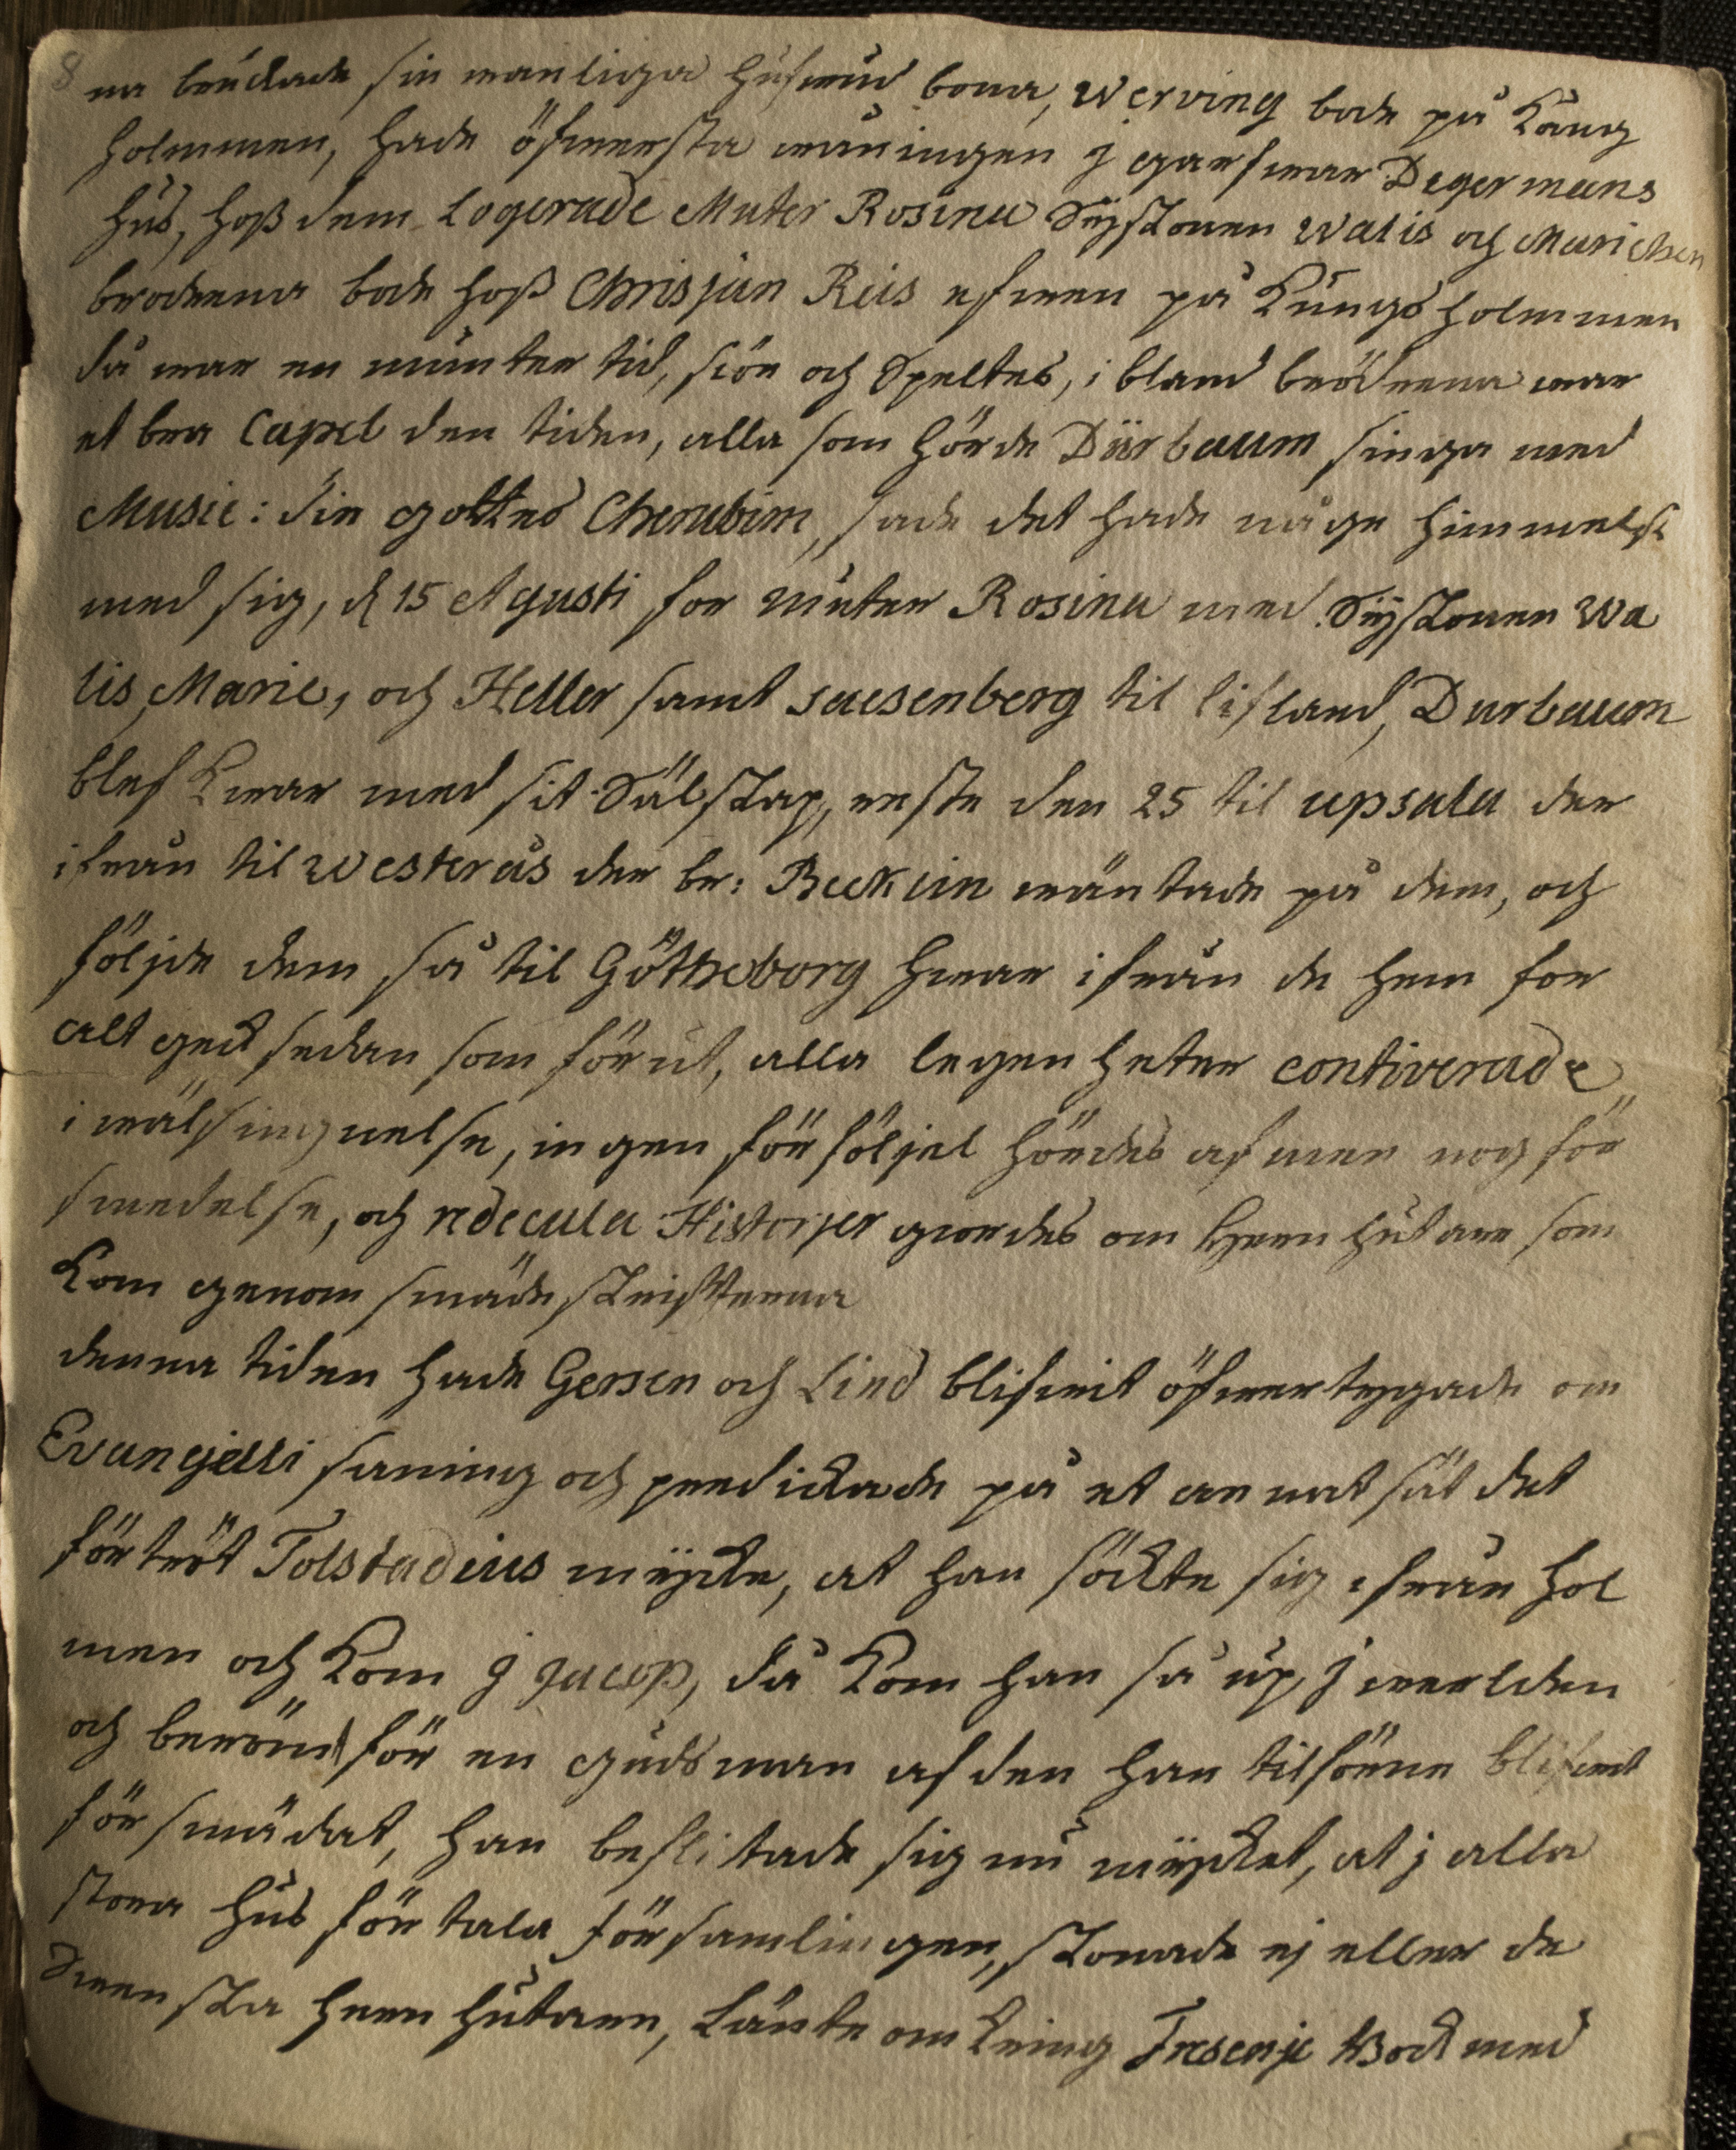 8
na brukade sin wanliga husrud bona, Werving bode på Kång
holmmen, hade öfwersta wåningen j garfwar Degermans
hus, hoß dem Logerade Muter Rosina Sÿstonen Walis och Marichen
brodrena bode hoß Chrisjan Reis efwen på Kungsholmmen
då war en munter tid, siön och Speltes, i bland brödrena war
et bra Capel den tiden, alla som hörde Därbaum siunga med
Music: din gottes Cherubim, sade det hade någe himmelsk
med sig, d 15 Agusti for muter Rosina med Sÿstonen Wa
lis, Marie, och Heller samt saesenberg til lifland, Durbaum
blef Kwar med sit Sälskap, reste den 25 til upsala der
ifrån til Westerås der br: Beckun wäntade på dem, och
följde dem så til Götheborg hwar ifrån de hem for
alt geck sedan som förut, alla legenheter contiverade
i wälsingnelse, ingen förföljel hördes af men nog för
smedelse, och redecula Historjer giordes om Herrnhutare som
Kom genom smädeskrifterna
denna tiden hade Gersen och Lind blifwit öfwertygade om
Evangjelli saning och predickade på et annat sät det
förtröt Tolstadius mÿcke, at han söckte sig ifrån hol
men och Kom j Jacop, då Kom han så up j werlden
och berömd för en gudsman af den han tilförne blifwit
försmädat, han beflitade sig nu mÿcket, at j alla
stora hus förtala församlingen, skonade ej eller de
Swenska herrnhutare, länte omkring Fresenje Bock med